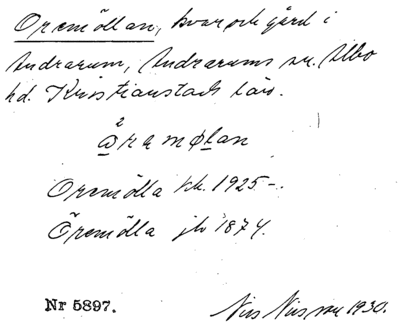 Oremöllan, kvar och gård i
Andrarum, Andrarums sn. Albo
hd. Kristianstads län.
2
Oremölla kk. 1925-.
Öremölla jb 1874.
Nr 5897. Nils Nilsson 1930.